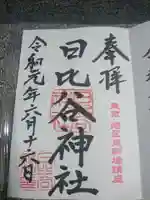 奉拝
東京・港区東新橋鎮座
日比谷神社
令和元年六月十六日